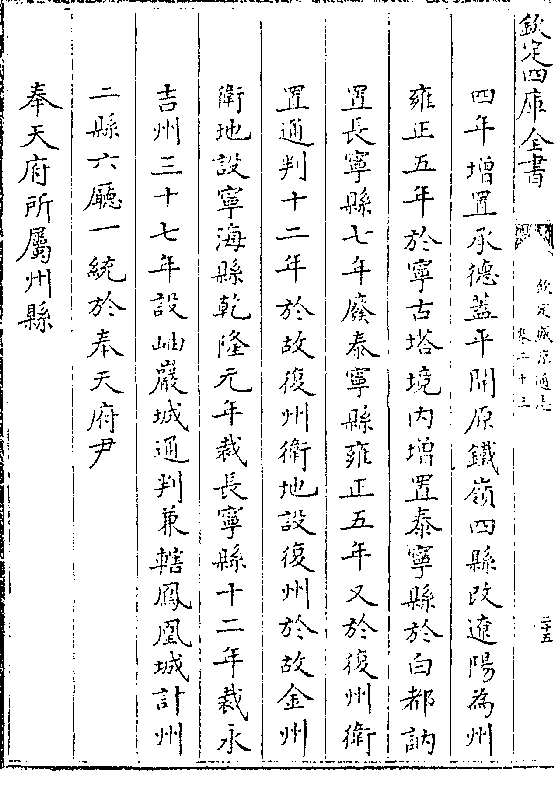 欽定四庫全書
欽定盛京通志
卷二十三
二十五
四年增置承德蓋平開原鐵嶺四縣改遼陽為州
雍正五年於寧古塔境内增置泰寧縣於白都訥
置長寧縣七年廢泰寧縣雍正五年又於復州衛
置通判十二年於故復州衛地設復州於故金州
衛地設寧海縣乾隆元年裁長寧縣十二年裁永
吉州三十七年設岫巖城通判兼轄鳳凰城計州
二縣六廳一統於奉天府尹
奉天府所屬州縣